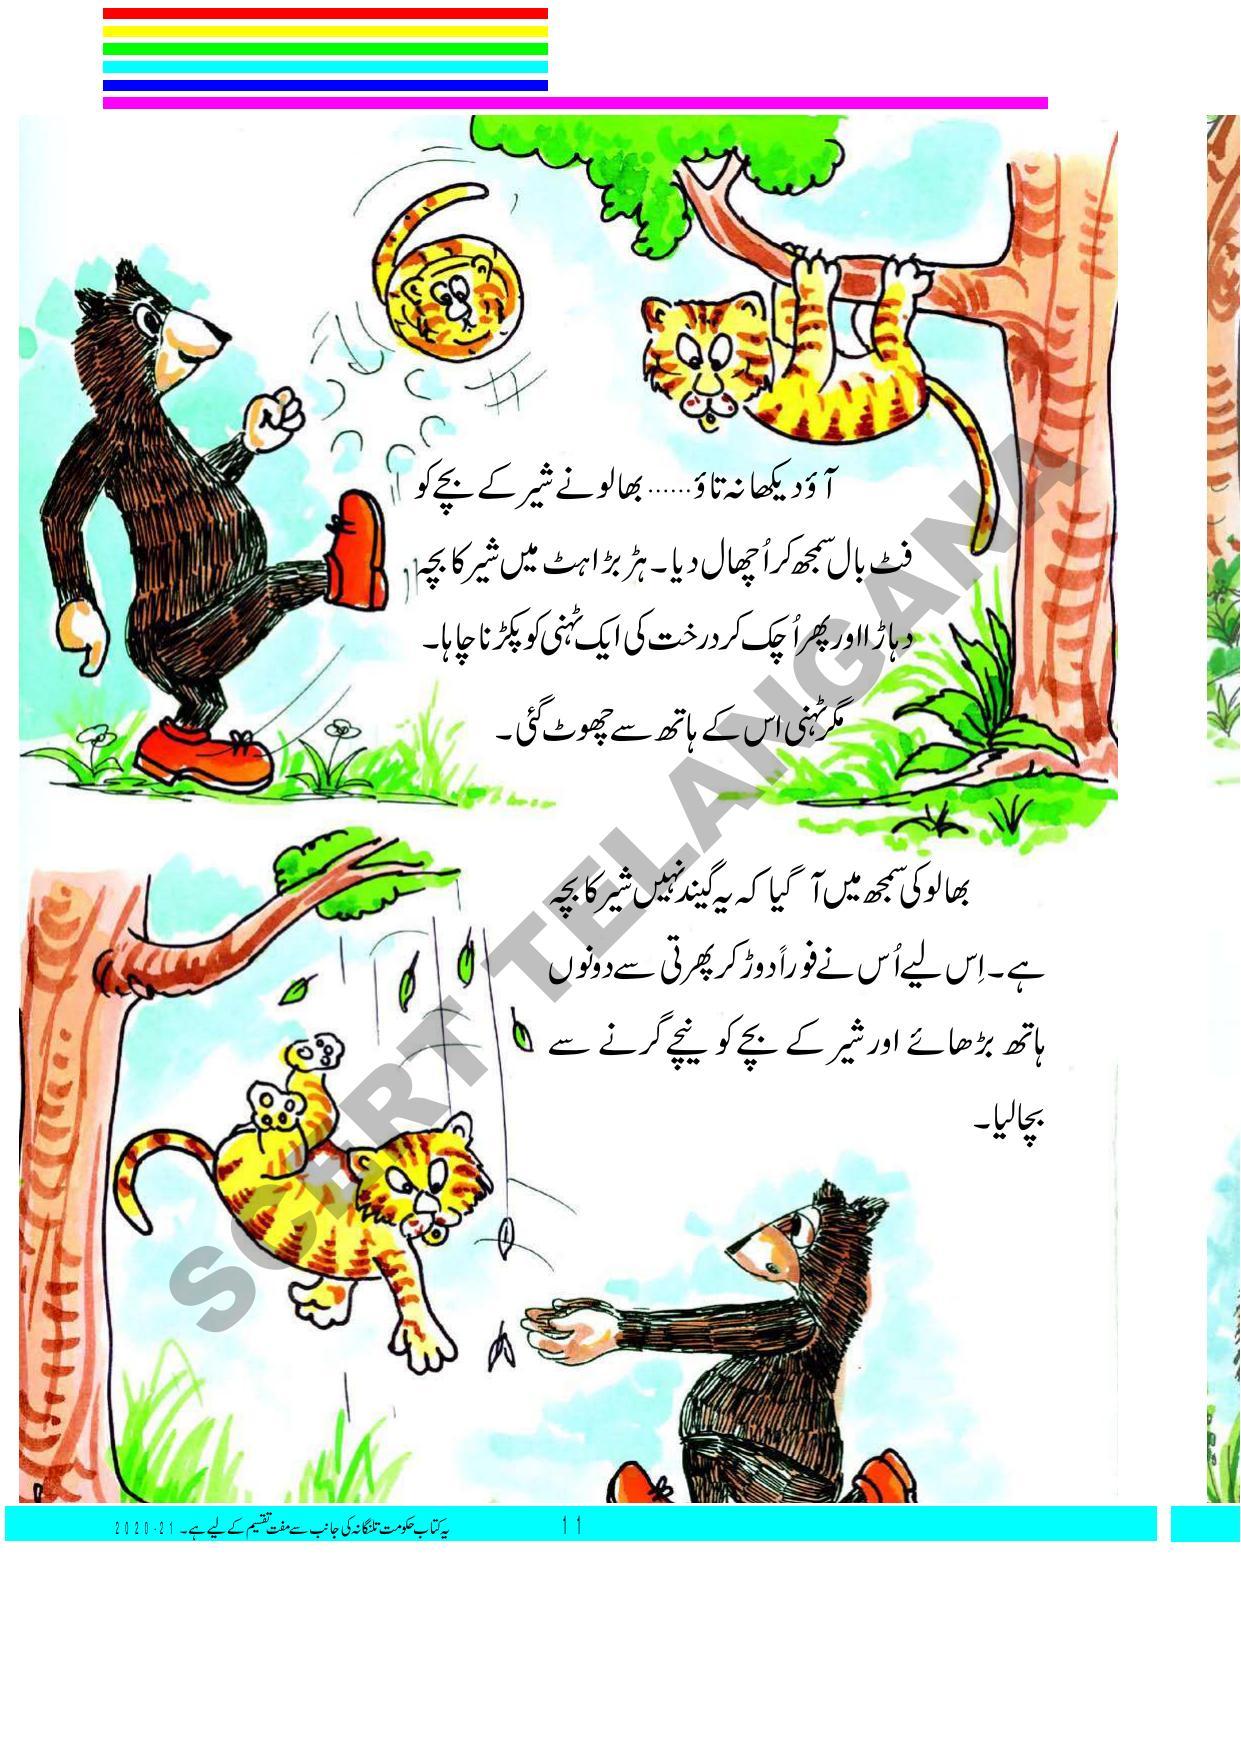 آؤ دیکھا نہ تاؤ...... بھالو نے شیر کے بچے کو
فٹ بال سمجھ کر اُچھال دیا۔ ہڑبڑاہٹ میں شیر کا بچہ
دہاڑا اور پھر اُچک کر درخت کی ایک ٹہنی کو پکڑنا چاہا۔
مگر ٹہنی اس کے ہاتھ سے چھوٹ گئی۔
بھالو کی سمجھ میں آ گیا کہ یہ گیند نہیں شیر کا بچہ
ہے۔ اِس لیے اُس نے فوراً دوڑ کر پھرتی سے دونوں
ہاتھ بڑھائے اور شیر کے بچے کو نیچے گرنے سے
بچا لیا۔
SCERT TELANGANA
یہ کتاب حکومت تلنگانہ کی جانب سے مفت تقسیم کے لیے ہے۔ 2020-21
11